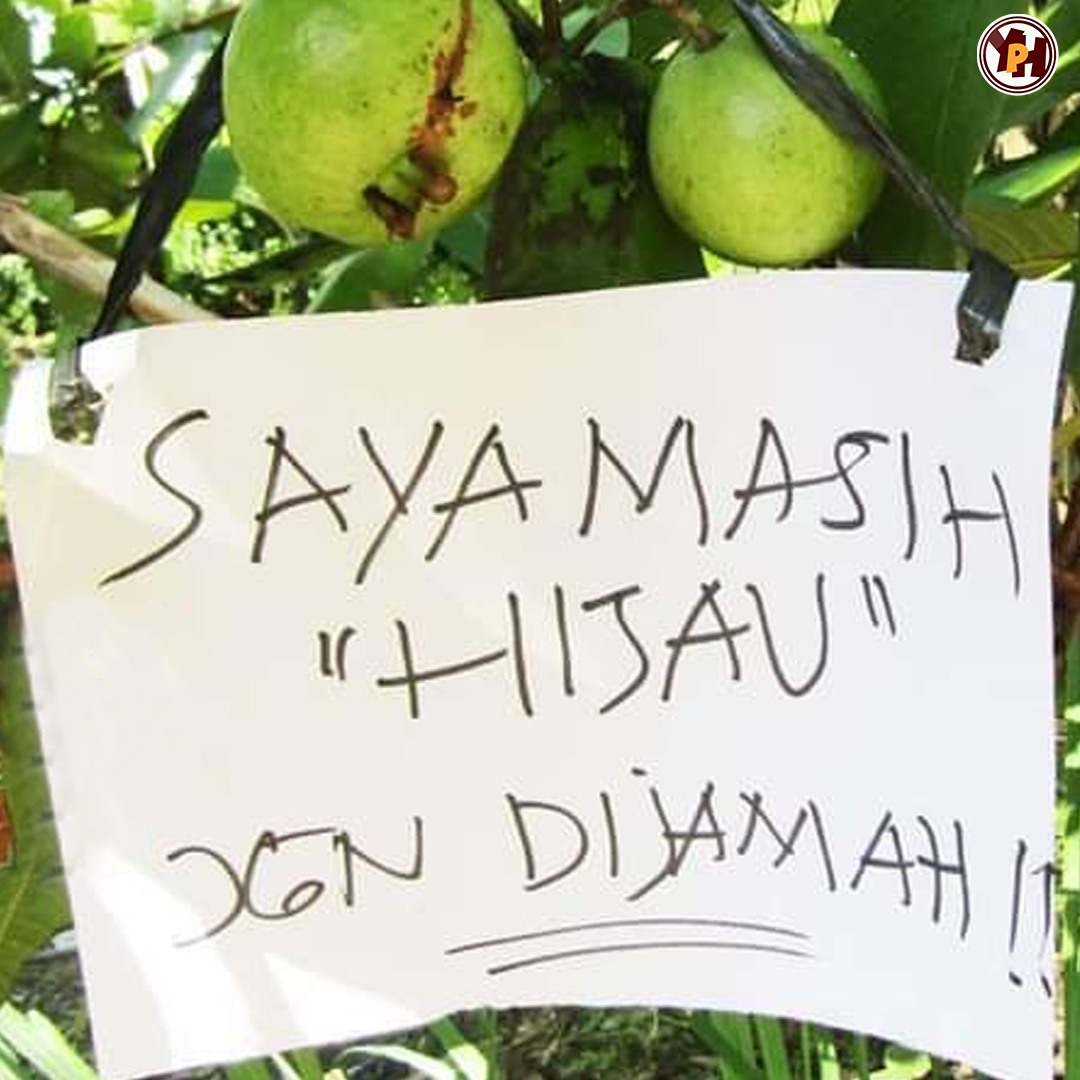 YPH
SAYA MASIH
"HIJAU"
JGN DIJAMAH !!